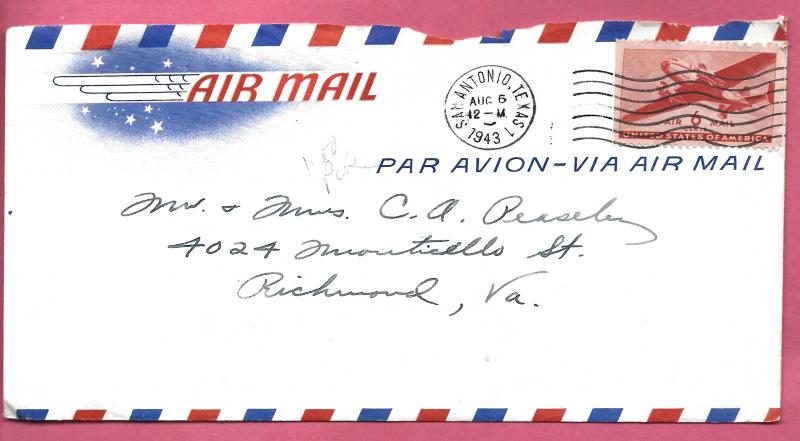 AIR MAIL
SAN ANTONIO, TEXAS 1
AUG 6
12-M
1943
AIR 6 MAIL
UNITED STATES OF AMERICA
PAR AVION-VIA AIR MAIL
Mr. & Mrs. C. A. Peaseley
4024 Monticello St.
Richmond, Va.